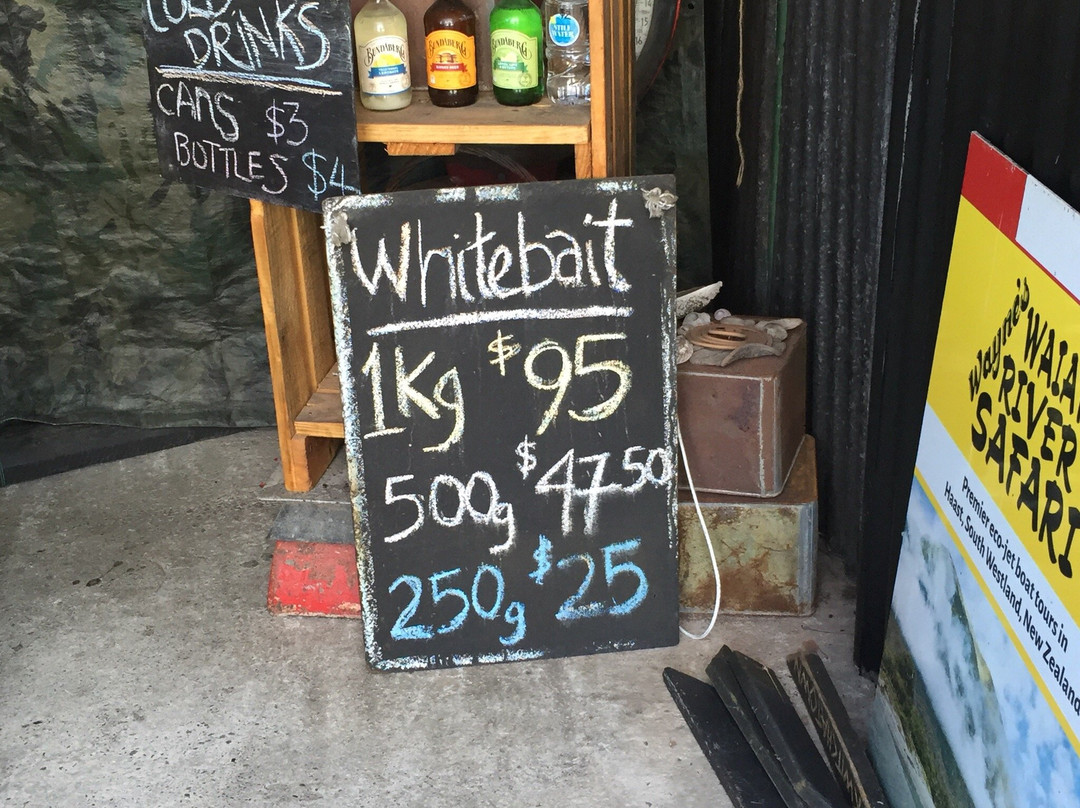 COLD
DRINKS
CANS $3
BOTTLES $4
BUNDABERG
BUNDABERG
BUNDABERG
STILL
WATER
Whitebait
1Kg $95
500g $47.50
250g $25
Wayne's
RIVER
SAFARI
Premier eco-jet boat tours in
Haast, South Westland, New Zealand